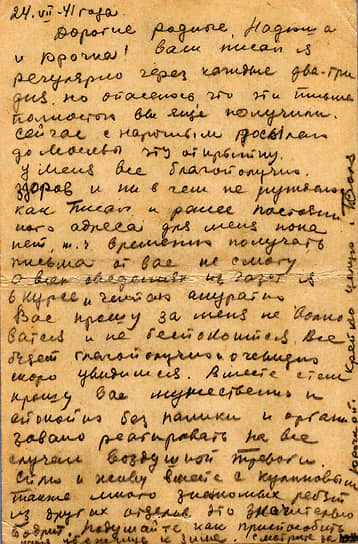 24.VII-41 года
Дорогие родные, Надюша
и Ррочка! Вам писал я
регулярно через каждые два-три
дня, но опасаюсь, что эти письма
полностью вы еще получили.
Сейчас с нарочным посылаю
до Москвы эту открытку.
У меня все благополучно.
Здоров и ни в чем не нуждаюсь
как писал и ранее постоян
ного адреса для меня пока
нет, т.ч. временно получать
письма от вас не смогу
О всех сведениях из газет я
в курсе и читаю акуратно
Вас прошу за меня не волно
ваться и не беспокоиться. Все
будет благополучно и очевидно
скоро увидимся. Вместе с тем
прошу вас мужественно и
спокойно без паники и органи
зовано реагировать на все
случаи воздушной тревоги.
Сплю и живу вместе с Куликовым
также много знакомых ребят
из других отделов это значительно
бодрит. Подумайте как приспособить
к зиме. Смотрите за
Крепко целую